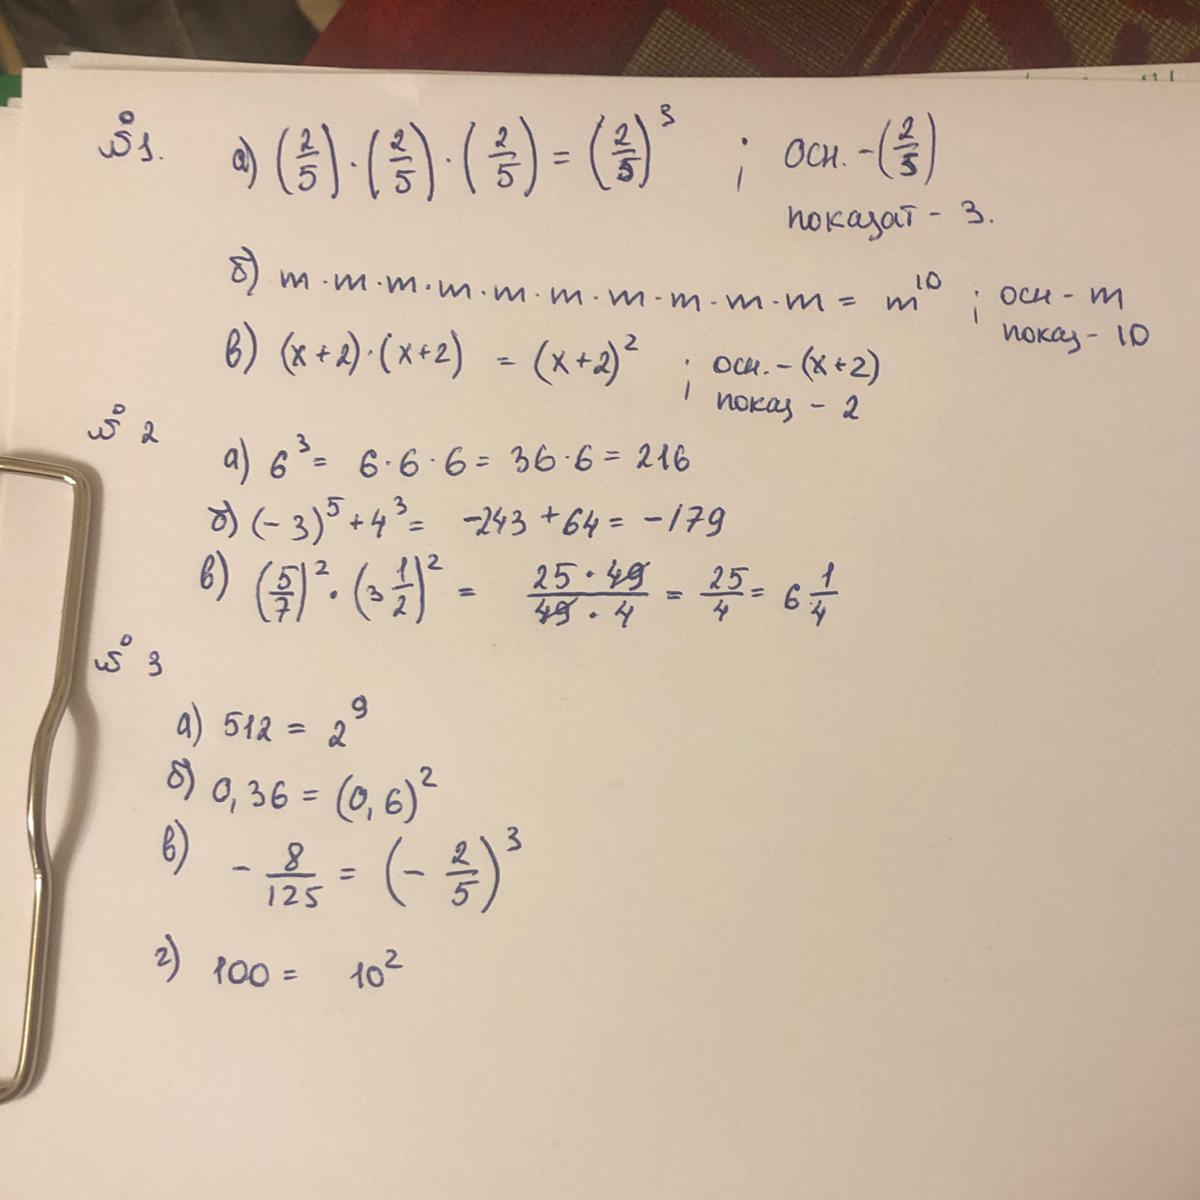 №1. а) (2/5)·(2/5)·(2/5) = (2/5)³ ; осн. - (2/5)
показат - 3.
б) m·m·m·m·m·m·m·m·m·m = m¹⁰ ; осн - m
показ - 10
в) (x+2)·(x+2) = (x+2)² ; осн. - (x+2)
показ - 2
№ 2
а) 6³ = 6·6·6 = 36·6 = 216
б) (-3)⁵ + 4³ = -243 + 64 = -179
в) (5/7)² · (3 1/2)² = 25·49/49·4 = 25/4 = 6 1/4
№ 3
а) 512 = 2⁹
б) 0,36 = (0,6)²
в) - 8/125 = (- 2/5)³
г) 100 = 10²